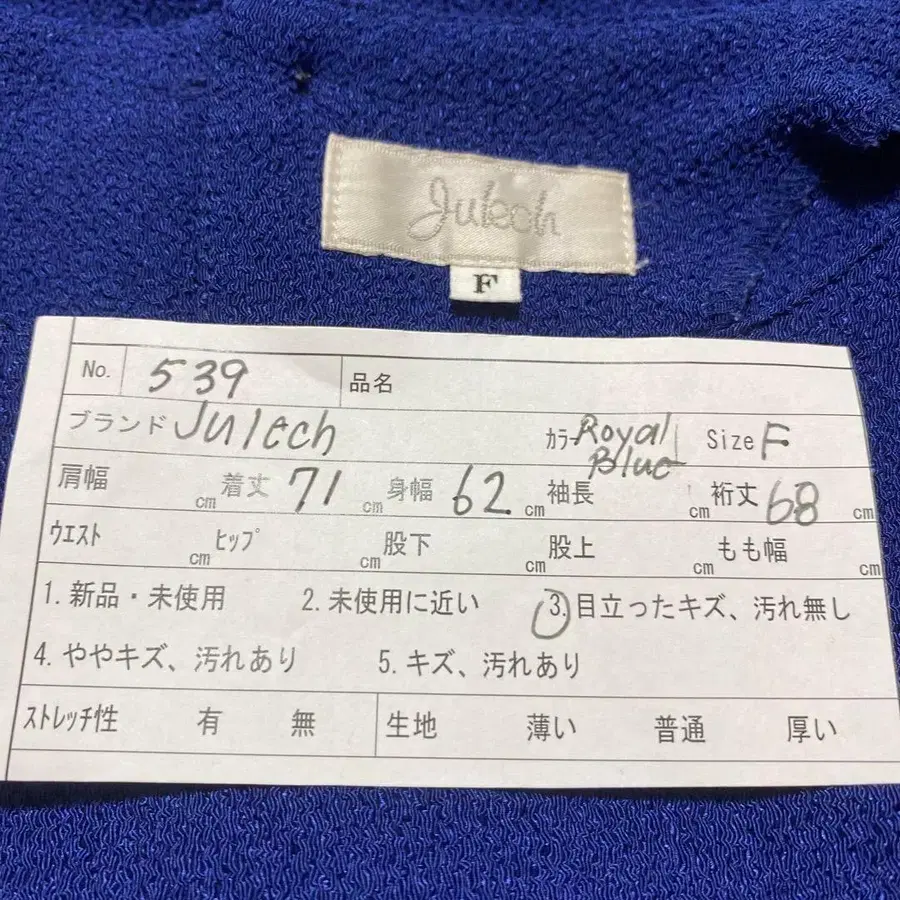 Julech
F
No. 539 品名
ブランド Julech カラー Royal Blue Size F
肩幅 cm 着丈 71 cm 身幅 62 cm 袖長 cm 裄丈 68 cm
ウエスト cm ヒップ cm 股下 cm 股上 cm もも幅 cm
1. 新品・未使用 2. 未使用に近い 3. 目立ったキズ、汚れ無し
4. ややキズ、汚れあり 5. キズ、汚れあり
ストレッチ性 有 無 生地 薄い 普通 厚い